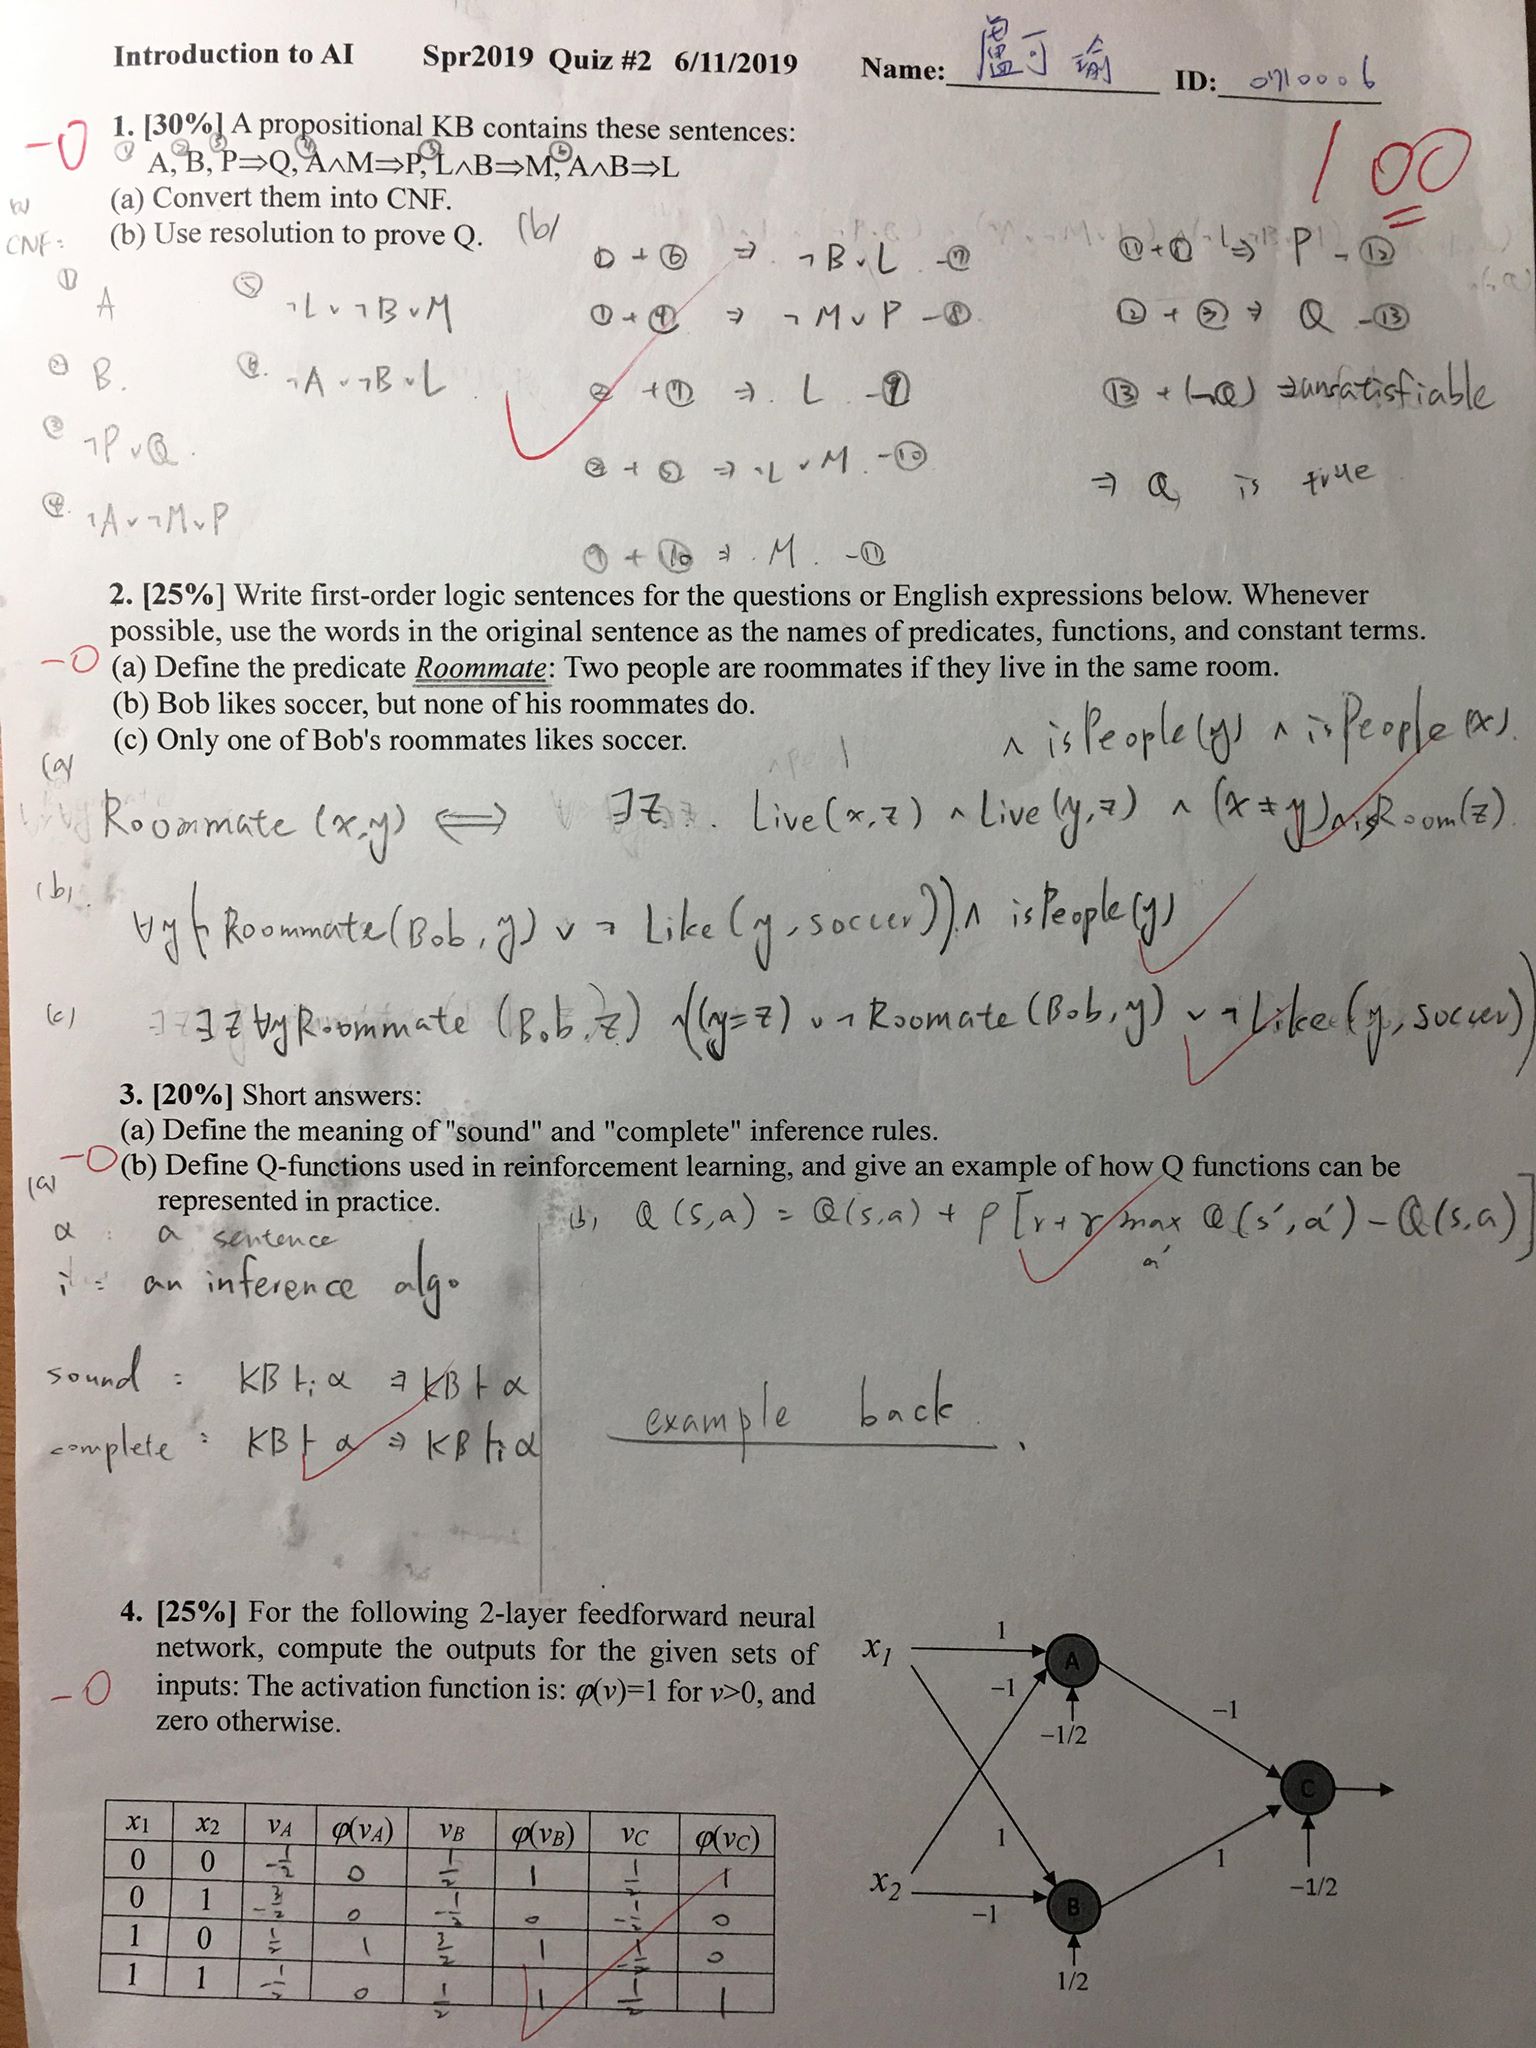 Introduction to AI Spr2019 Quiz #2 6/11/2019 Name: 盧可瑜 ID: 0710006
100
-0 1. [30%] A propositional KB contains these sentences:
① ② ③ ④ ⑤ ⑥
A, B, P⇒Q, A∧M⇒P, L∧B⇒M, A∧B⇒L
(a) Convert them into CNF.
(b) Use resolution to prove Q.
(a)
CNF:
① A
② B.
③ ¬P∨Q.
④ ¬A∨¬M∨P
⑤ ¬L∨¬B∨M
⑥ ¬A∨¬B∨L
(b)
①+⑥ ⇒ ¬B∨L -⑦
①+④ ⇒ ¬M∨P -⑧
②+⑦ ⇒ L -⑨
②+⑤ ⇒ ¬L∨M -⑩
⑨+⑩ ⇒ M. -⑪
⑪+⑧ ⇒ P -⑫
⑫+③ ⇒ Q -⑬
⑬+(¬Q) ⇒ unsatisfiable
⇒ Q is true
2. [25%] Write first-order logic sentences for the questions or English expressions below. Whenever
possible, use the words in the original sentence as the names of predicates, functions, and constant terms.
-0 (a) Define the predicate Roommate: Two people are roommates if they live in the same room.
(b) Bob likes soccer, but none of his roommates do.
(c) Only one of Bob's roommates likes soccer.
∧ isPeople(y) ∧ isPeople(x).
(a)
Roommate (x,y) ⟺ ∃z. Live(x,z) ∧ Live(y,z) ∧ (x≠y) ∧ isRoom(z).
(b).
∀y(¬Roommate(Bob, y) ∨ ¬ Like(y, soccer)) ∧ isPeople(y)
(c) ∃z ∀y Roommate (Bob, z) ∧((y=z) ∨ ¬Roomate(Bob, y) ∨ ¬Like(y, soccer))
3. [20%] Short answers:
(a) Define the meaning of "sound" and "complete" inference rules.
-0 (b) Define Q-functions used in reinforcement learning, and give an example of how Q functions can be
represented in practice.
(a)
α : a sentence
i : an inference algo
sound : KB ⊢i α ⇒ KB ⊢ α
complete : KB ⊢ α ⇒ KB ⊢i α
(b) Q(s,a) = Q(s,a) + ρ[r+γ max Q(s',a') - Q(s,a)]
a'
example back.
4. [25%] For the following 2-layer feedforward neural
network, compute the outputs for the given sets of
-0 inputs: The activation function is: φ(v)=1 for v>0, and
zero otherwise.
x1 x2 vA φ(vA) vB φ(vB) vC φ(vC)
0 0 -1/2 0 1/2 1 1/2 1
0 1 -3/2 0 -1/2 0 -1/2 0
1 0 1/2 1 3/2 1 -1/2 0
1 1 -1/2 0 1/2 1 1/2 1
x1 1 A
-1
-1/2
-1
C
1
1
-1/2
x2 -1 B
1/2